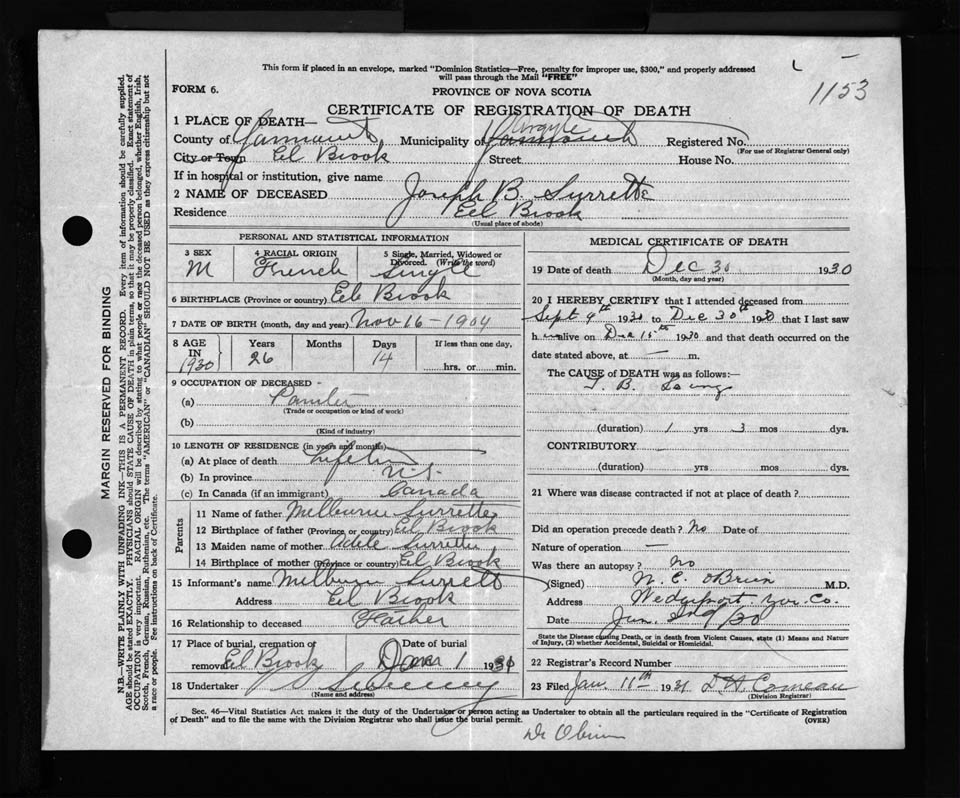 This form if placed in an envelope, marked "Dominion Statistics—Free, penalty for improper use, $300," and properly addressed
will pass through the Mail "FREE"
FORM 6.
PROVINCE OF NOVA SCOTIA
1153
CERTIFICATE OF REGISTRATION OF DEATH
1 PLACE OF DEATH—
Argyle
County of Yarmouth Municipality of Yarmouth Registered No.
(For use of Registrar General only)
City or Town Eel Brook Street House No.
If in hospital or institution, give name
2 NAME OF DECEASED Joseph B. Surrette
Residence Eel Brook
(Usual place of abode)
PERSONAL AND STATISTICAL INFORMATION
3 SEX M
4 RACIAL ORIGIN French
5 Single, Married, Widowed or Divorced. (Write the word) Single
6 BIRTHPLACE (Province or country) Eel Brook
7 DATE OF BIRTH (month, day and year) Nov 16 - 1904
8 AGE IN 1930 Years 26 Months Days 14 If less than one day, hrs. or min.
9 OCCUPATION OF DECEASED -
(a)
(Trade or occupation or kind of work)
(b)
(Kind of industry)
10 LENGTH OF RESIDENCE (in years and months)
(a) At place of death Lifetime
(b) In province N.S.
(c) In Canada (if an immigrant) Canada
Parents
11 Name of father Melburne Surrette
12 Birthplace of father (Province or country) Eel Brook
13 Maiden name of mother Adele Surrette
14 Birthplace of mother (Province or country) Eel Brook
15 Informant's name Melburn Surrett
Address Eel Brook
16 Relationship to deceased Father
17 Place of burial, cremation or removal Eel Brook Date of burial 1 1931
18 Undertaker Sweeney
(Name and address)
MEDICAL CERTIFICATE OF DEATH
19 Date of death Dec 30 1930
(Month, day and year)
20 I HEREBY CERTIFY that I attended deceased from
Sept 9th 1930 to Dec 30th 1930 that I last saw
h im alive on Dec 15th 1930 and that death occurred on the
date stated above, at — m.
The CAUSE of DEATH was as follows:—
T. B. Lungs
(duration) 1 yrs 3 mos dys.
CONTRIBUTORY
(duration) yrs. mos. dys.
21 Where was disease contracted if not at place of death?
Did an operation precede death? No Date of
Nature of operation —
Was there an autopsy? No
(Signed) O'Brien M.D.
Address Wedgeport Yar. Co.
Date Jan. 2nd
State the Disease causing Death, or in death from Violent Causes, state (1) Means and Nature
of Injury, (2) whether Accidental, Suicidal or Homicidal.
22 Registrar's Record Number
23 Filed Jan. 11th 1931 Comeau
(Division Registrar)
Sec. 46—Vital Statistics Act makes it the duty of the Undertaker or person acting as Undertaker to obtain all the particulars required in the "Certificate of Registration
of Death" and to file the same with the Division Registrar who shall issue the burial permit.
(OVER)
Dr Obrien
MARGIN RESERVED FOR BINDING
N.B.—WRITE PLAINLY WITH UNFADING INK—THIS IS A PERMANENT RECORD. Every item of information should be carefully supplied.
AGE should be stated EXACTLY. PHYSICIANS should STATE CAUSE OF DEATH in plain terms, so that it may be properly classified. Exact statement of
OCCUPATION is very important. RACIAL ORIGIN will be described by stating to what people or race the deceased person belonged, whether English, Irish,
Scotch, French, German, Russian, Ruthenian, etc. The terms "AMERICAN" or "CANADIAN" SHOULD NOT BE USED as they express citizenship but not
a race or people. See instructions on back of Certificate.